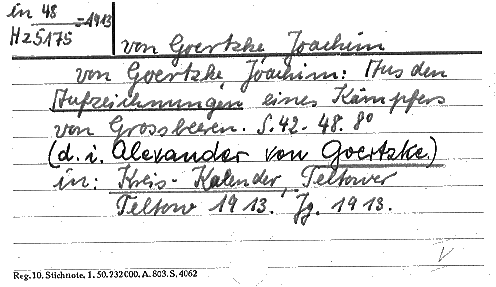 in 48
HzS175 = 1913
von Goertzke, Joachim
von Goertzke, Joachim: Aus den
Aufzeichnungen eines Kämpfers
von Grossbeeren. S. 42-48. 8°
(d. i. Alexander von Goertzke.)
in: Kreis-Kalender, Teltower
Teltow 1913. Jg. 1913.
Reg. 10. Stichnote. 1. 50. 232000. A. 803. S. 4062